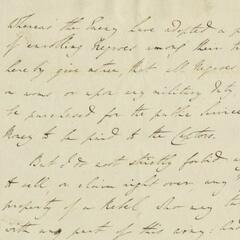 Whereas the Enemy have adopted a p
of enrolling Negroes among their
hereby give notice, that all Negroes
in arms or upon any military Duty
be purchased for the public Service
Money to be paid to the Captors.
But I do most strictly forbid any
to sell, or claim right over, any
property of a Rebel, who may
with any part of this army; and